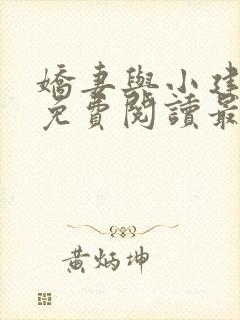 嬌妻與小建
免費閱讀最
黃炳坤